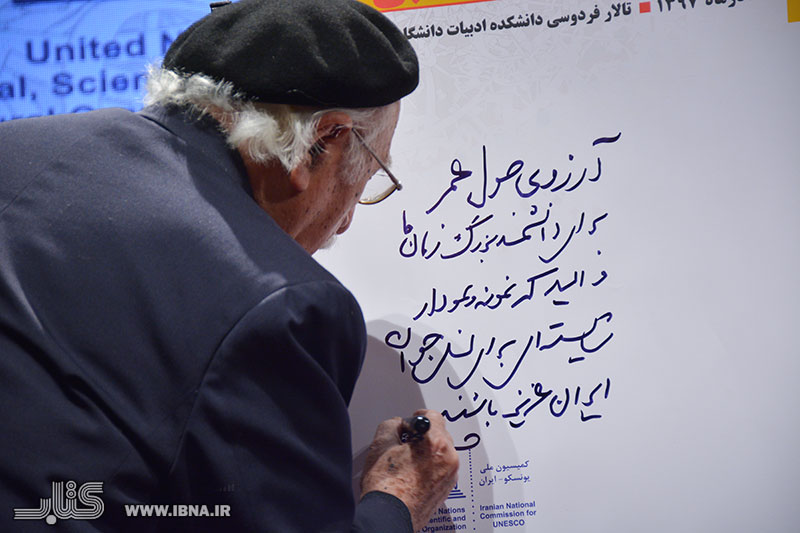 United N
al, Scien
رماه ۱۳۹۷ ■ تالار فردوسی دانشکده ادبیات دانشگا
آرزوی طول عمر
برای دانشمند بزرگ زمان ما
و امید که نمونه و نمودار
شایسته‌ای برای نسل جوان
ایران عزیز باشند
کمیسیون ملی
یونسکو - ایران
Nations
ientific and
Organization
Iranian National
Commission for
UNESCO
کتاب
WWW.IBNA.IR